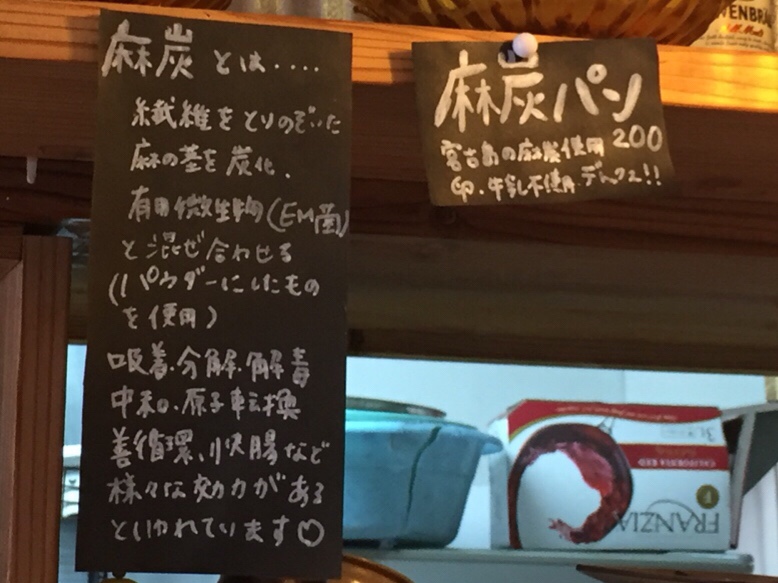 麻炭とは‥‥
繊維をとりのぞいた
麻の茎を炭化、
有用微生物(EM菌)
と混ぜ合わせる
(パウダーにしたもの
を使用)
吸着・分解・解毒
中和・原子転換
善循環、快腸など
様々な効力がある
といわれています♡
麻炭パン
宮古島の麻炭使用 200
卵、牛乳不使用 デトックス!!
CALIFORNIA RED
3L
FRANZIA